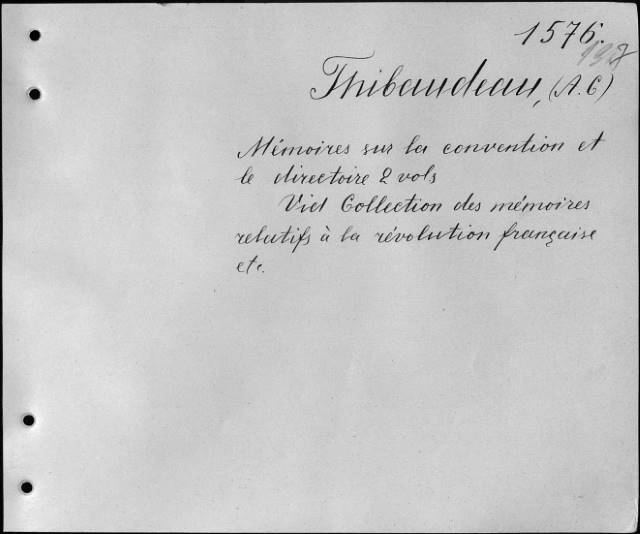 1576.
Thibaudeau, (A. C)
Mémoires sur la convention et
le directoire 2 vols
Vid Collection des mémoires
relatifs à la révolution française
etc.